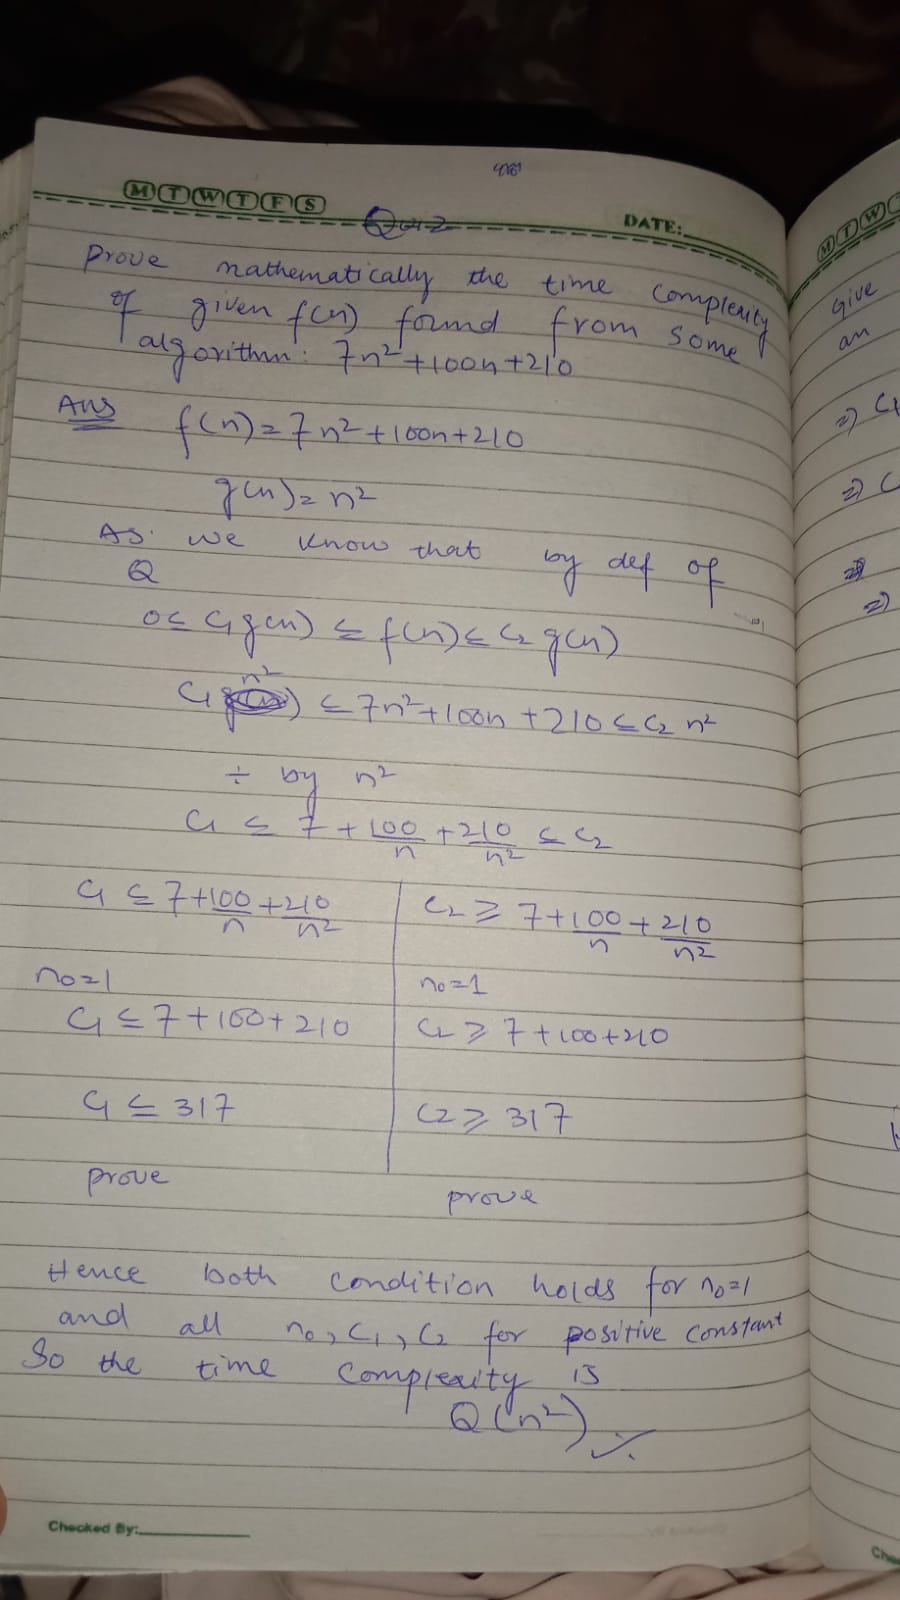 M T W T F S
Quiz
DATE:
Prove mathematically the time complexity
of given f(n) found from some
algorithm: 7n²+100n+210
Ans
f(n)=7n²+100n+210
g(n)=n²
As we know that by def of
Q
0≤ C₁g(n) ≤ f(n) ≤ C₂ g(n)
C₁ n² ≤ 7n²+100n+210 ≤ C₂ n²
÷ by n²
C₁ ≤ 7+100/n+210/n² ≤ C₂
C₁ ≤ 7+100/n+210/n² C₂ ≥ 7+100/n+210/n²
n₀=1 n₀=1
C₁ ≤ 7+100+210 C₂ ≥ 7+100+210
C₁ ≤ 317 C₂ ≥ 317
prove prove
Hence both condition holds for n₀=1
and all n₀, C₁, C₂ for positive constant
So the time complexity is
Q(n²)
Checked By:
M T W
Give
an
=) C₁
=) C
=)
=)
Che